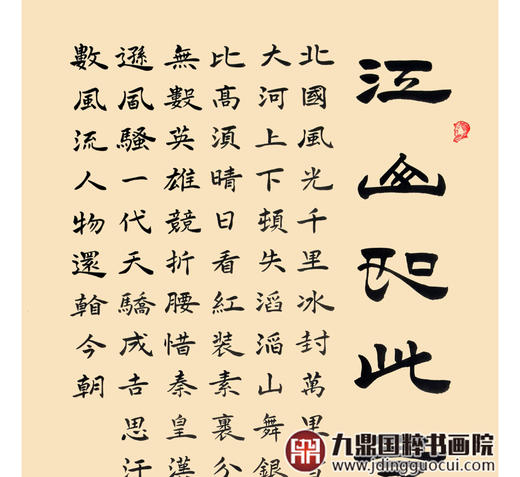 江山如此
北國風光千里冰封萬里
大河上下頓失滔滔山舞銀
比高須晴日看紅裝素裹分
無數英雄競折腰惜秦皇漢
遜風騷一代天驕成吉思汗
數風流人物還看今朝
九鼎国粹书画院
www.jdingguocui.com